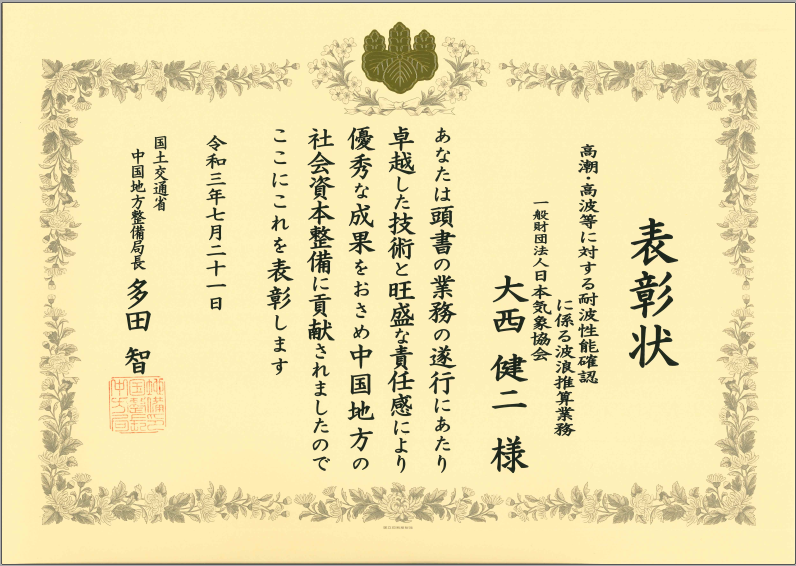 表彰状
高潮・高波等に対する耐波性能確認
に係る波浪推算業務
一般財団法人日本気象協会
大西 健二 様
あなたは頭書の業務の遂行にあたり
卓越した技術と旺盛な責任感により
優秀な成果をおさめ中国地方の
社会資本整備に貢献されましたので
ここにこれを表彰します
令和三年七月二十一日
国土交通省
中国地方整備局長 多田 智